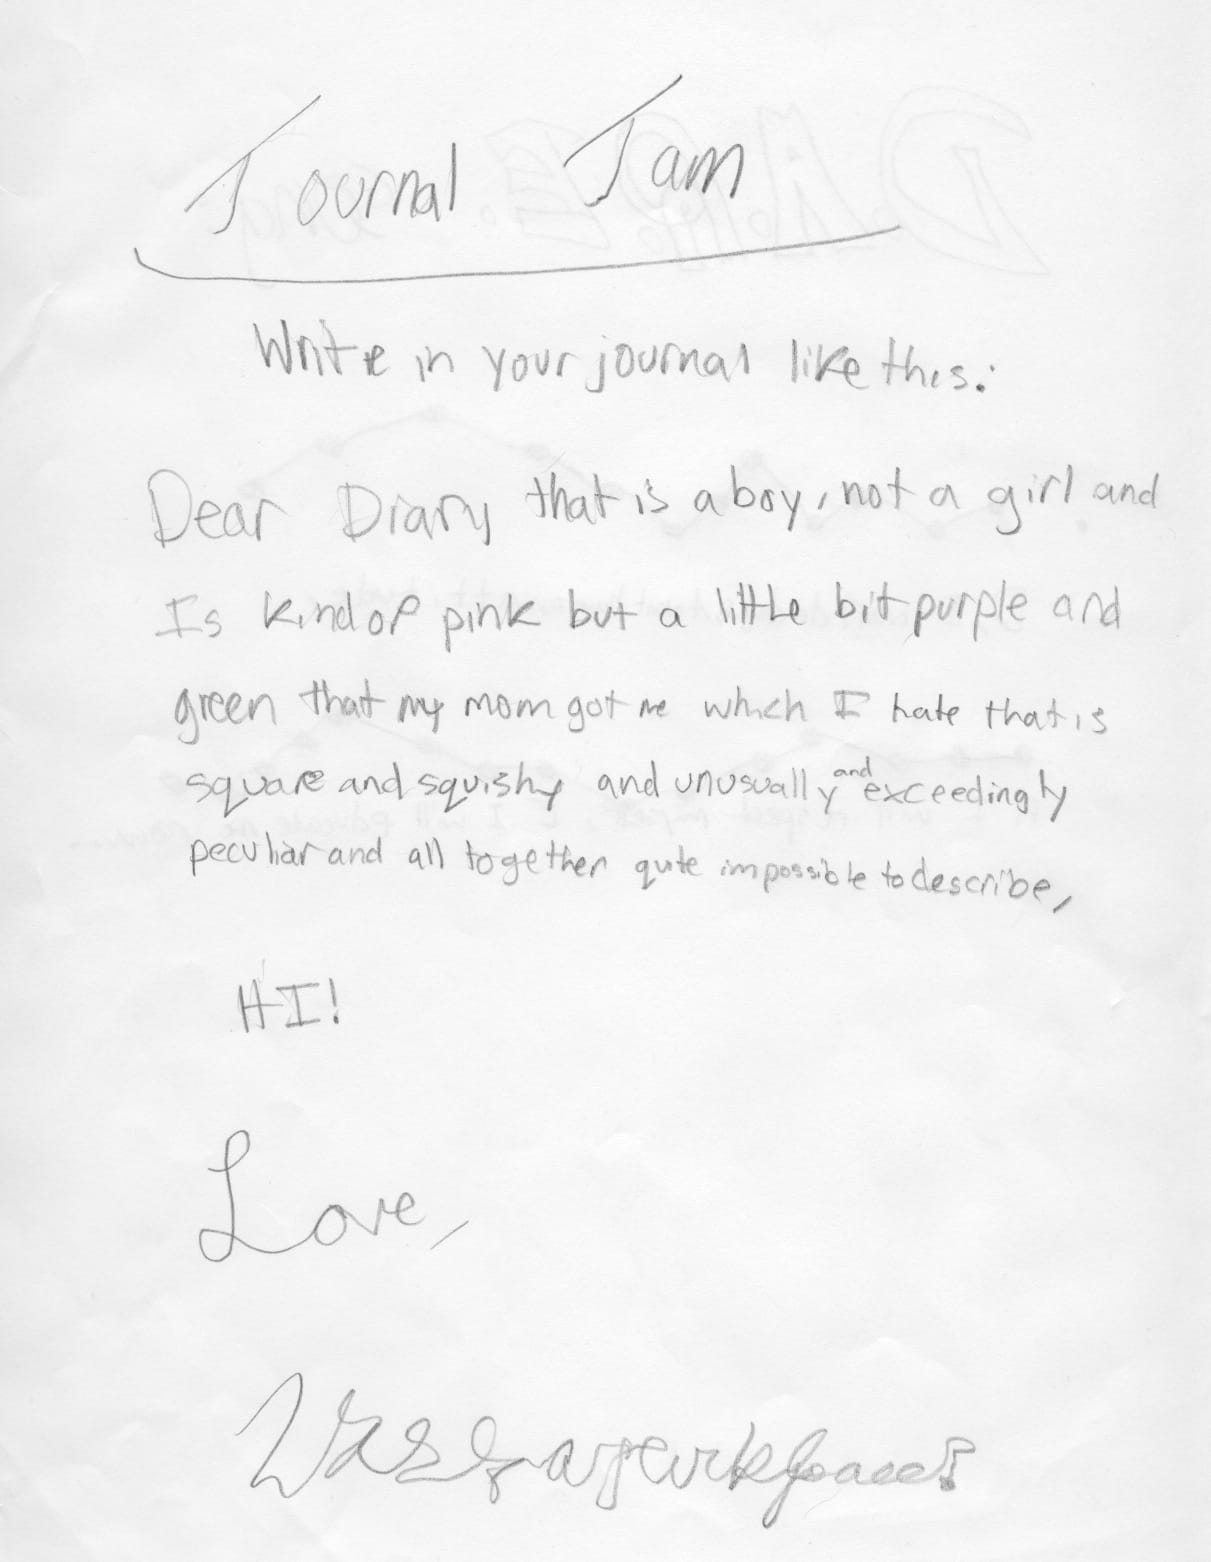 Journal Jam
Write in your journal like this:
Dear Diary that is a boy, not a girl and
Is kind of pink but a little bit purple and
green that my mom got me which I hate that is
square and squishy and unusually and exceedingly
peculiar and all together quite impossible to describe,
HI!
Love,